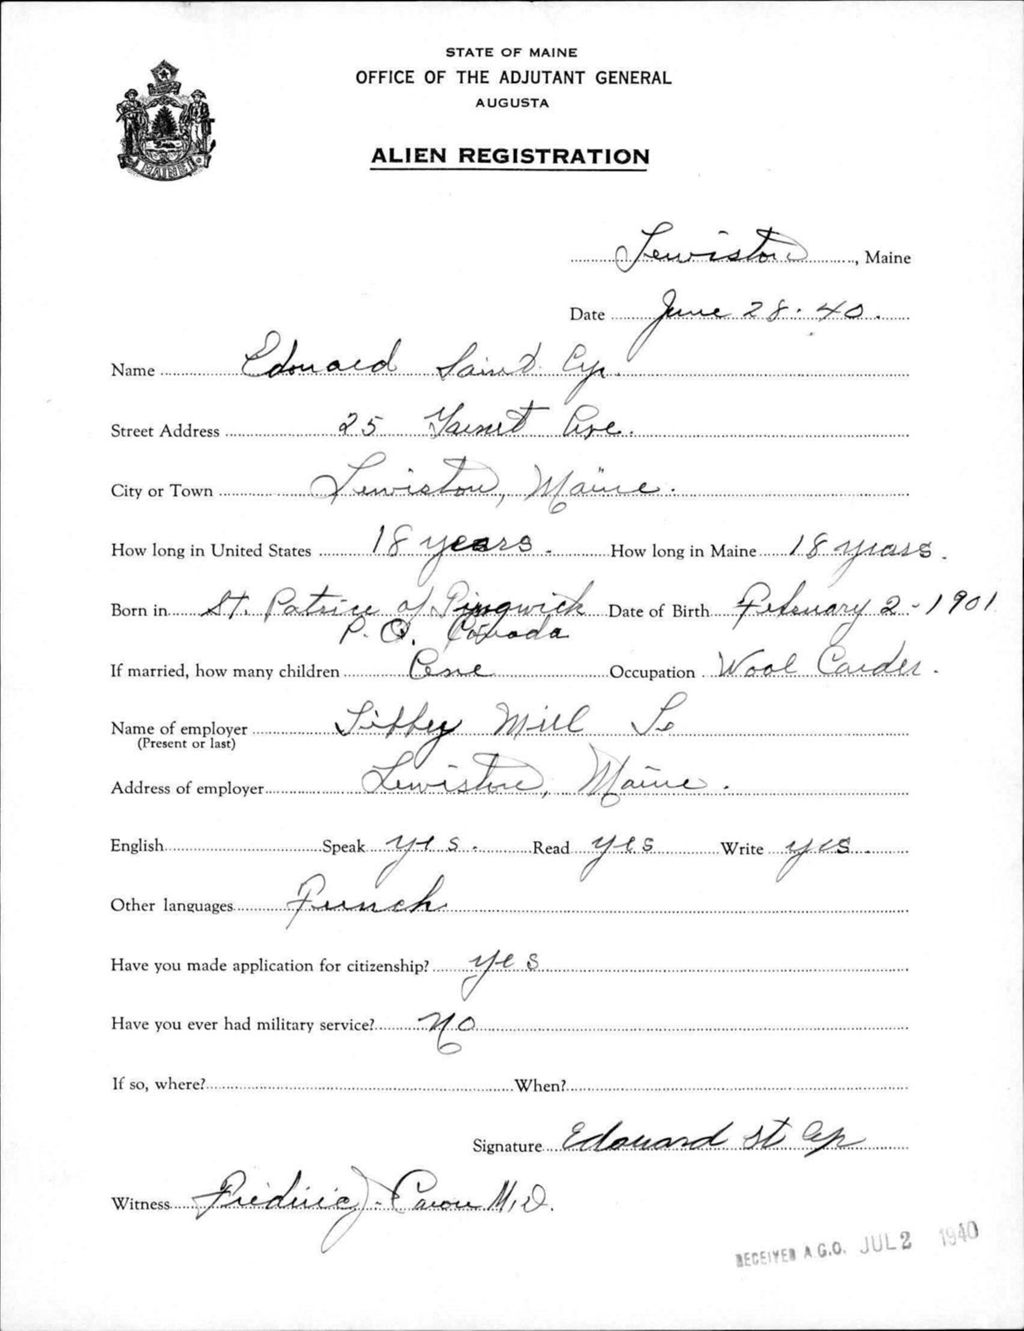 STATE OF MAINE
OFFICE OF THE ADJUTANT GENERAL
AUGUSTA
ALIEN REGISTRATION
Lewiston, Maine
Date June 28. 40.
Name Edouard Saint Cyr.
Street Address 25 Ave.
City or Town Lewiston, Maine.
How long in United States 18 years. How long in Maine 18 years.
Born in St. Patrice of Tingwick Date of Birth February 2-1901
P. Q. Canada
If married, how many children One Occupation Wool Carder.
Name of employer Libbey Mill
(Present or last)
Address of employer Lewiston, Maine.
English Speak yes. Read yes Write yes.
Other languages French
Have you made application for citizenship? yes
Have you ever had military service? No
If so, where? When?
Signature Edouard St Cyr
Witness Frederic J. Caron M.D.
RECEIVED A.G.O. JUL 2 1940